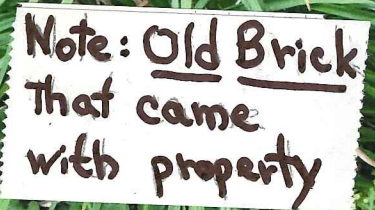 Note: Old Brick
That came
with property